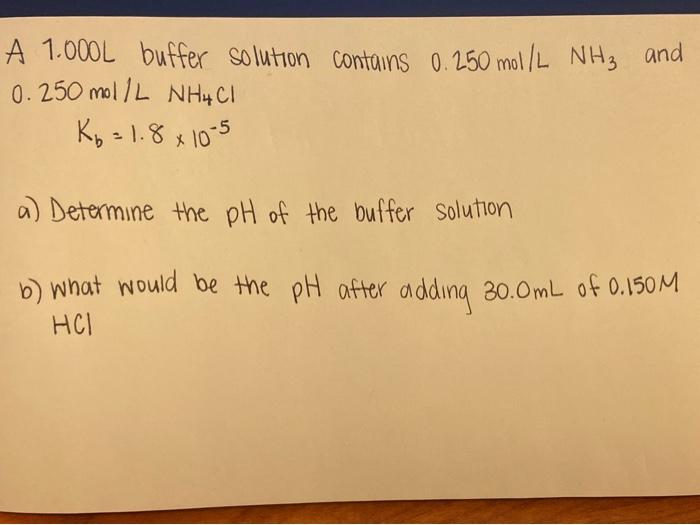 A 1.000L buffer solution contains 0.250 mol/L NH₃ and
0.250 mol/L NH₄Cl
K_b = 1.8 × 10⁻⁵
a) Determine the pH of the buffer solution
b) what would be the pH after adding 30.0mL of 0.150M
HCl